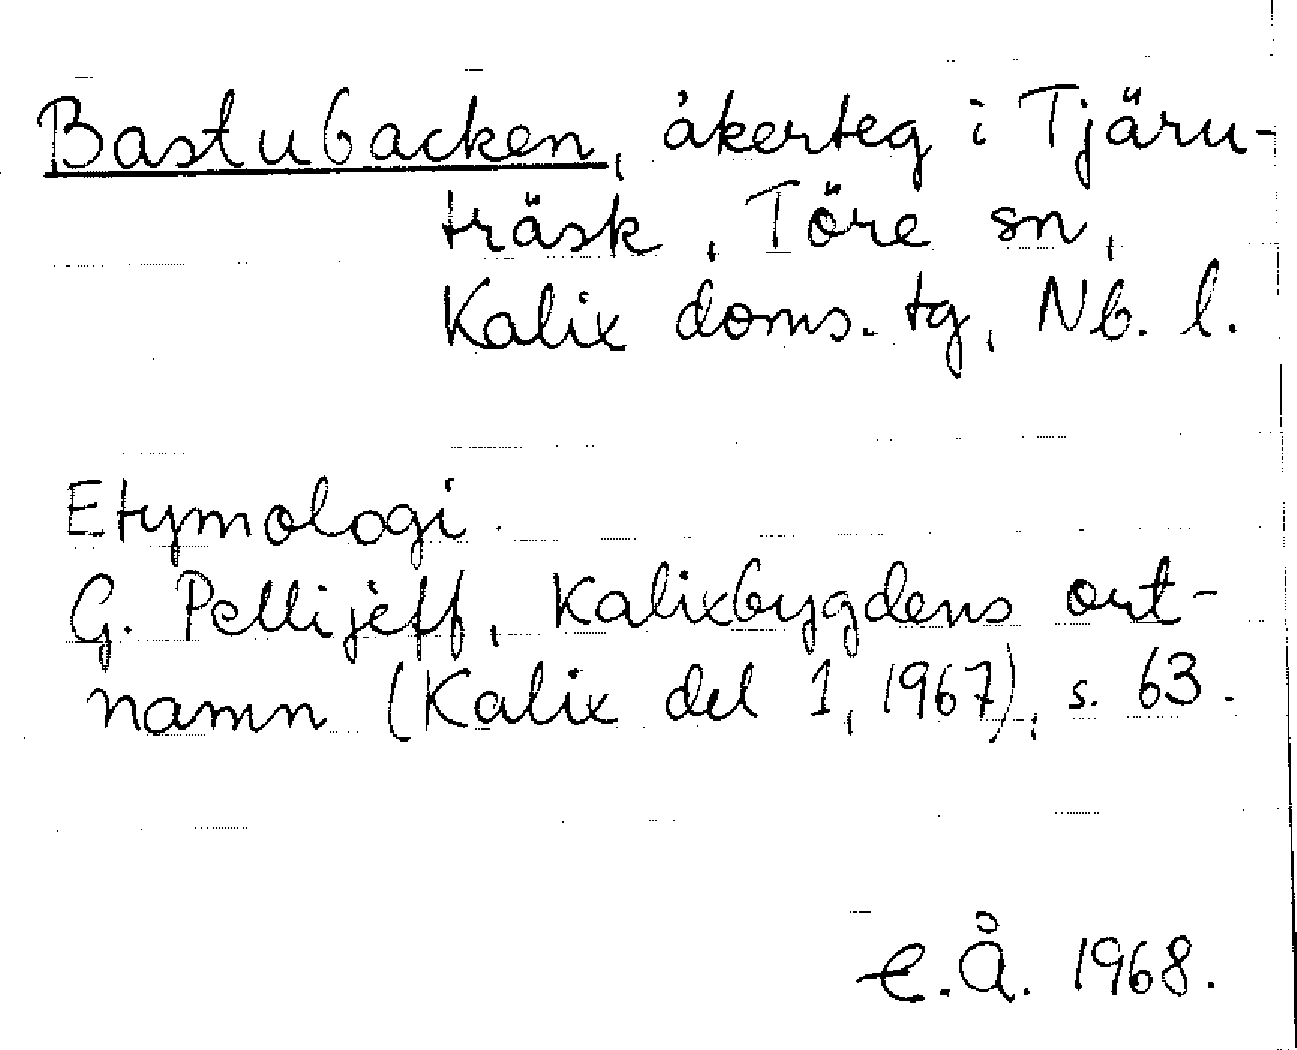 Bastubacken, åkerteg i Tjäru-
träsk, Töre sn,
Kalix doms. tg, Nb. l.
Etymologi.
G. Pellijeff, Kalixbygdens ort-
namn (Kalix del 1, 1967), s. 63.
C.Å. 1968.